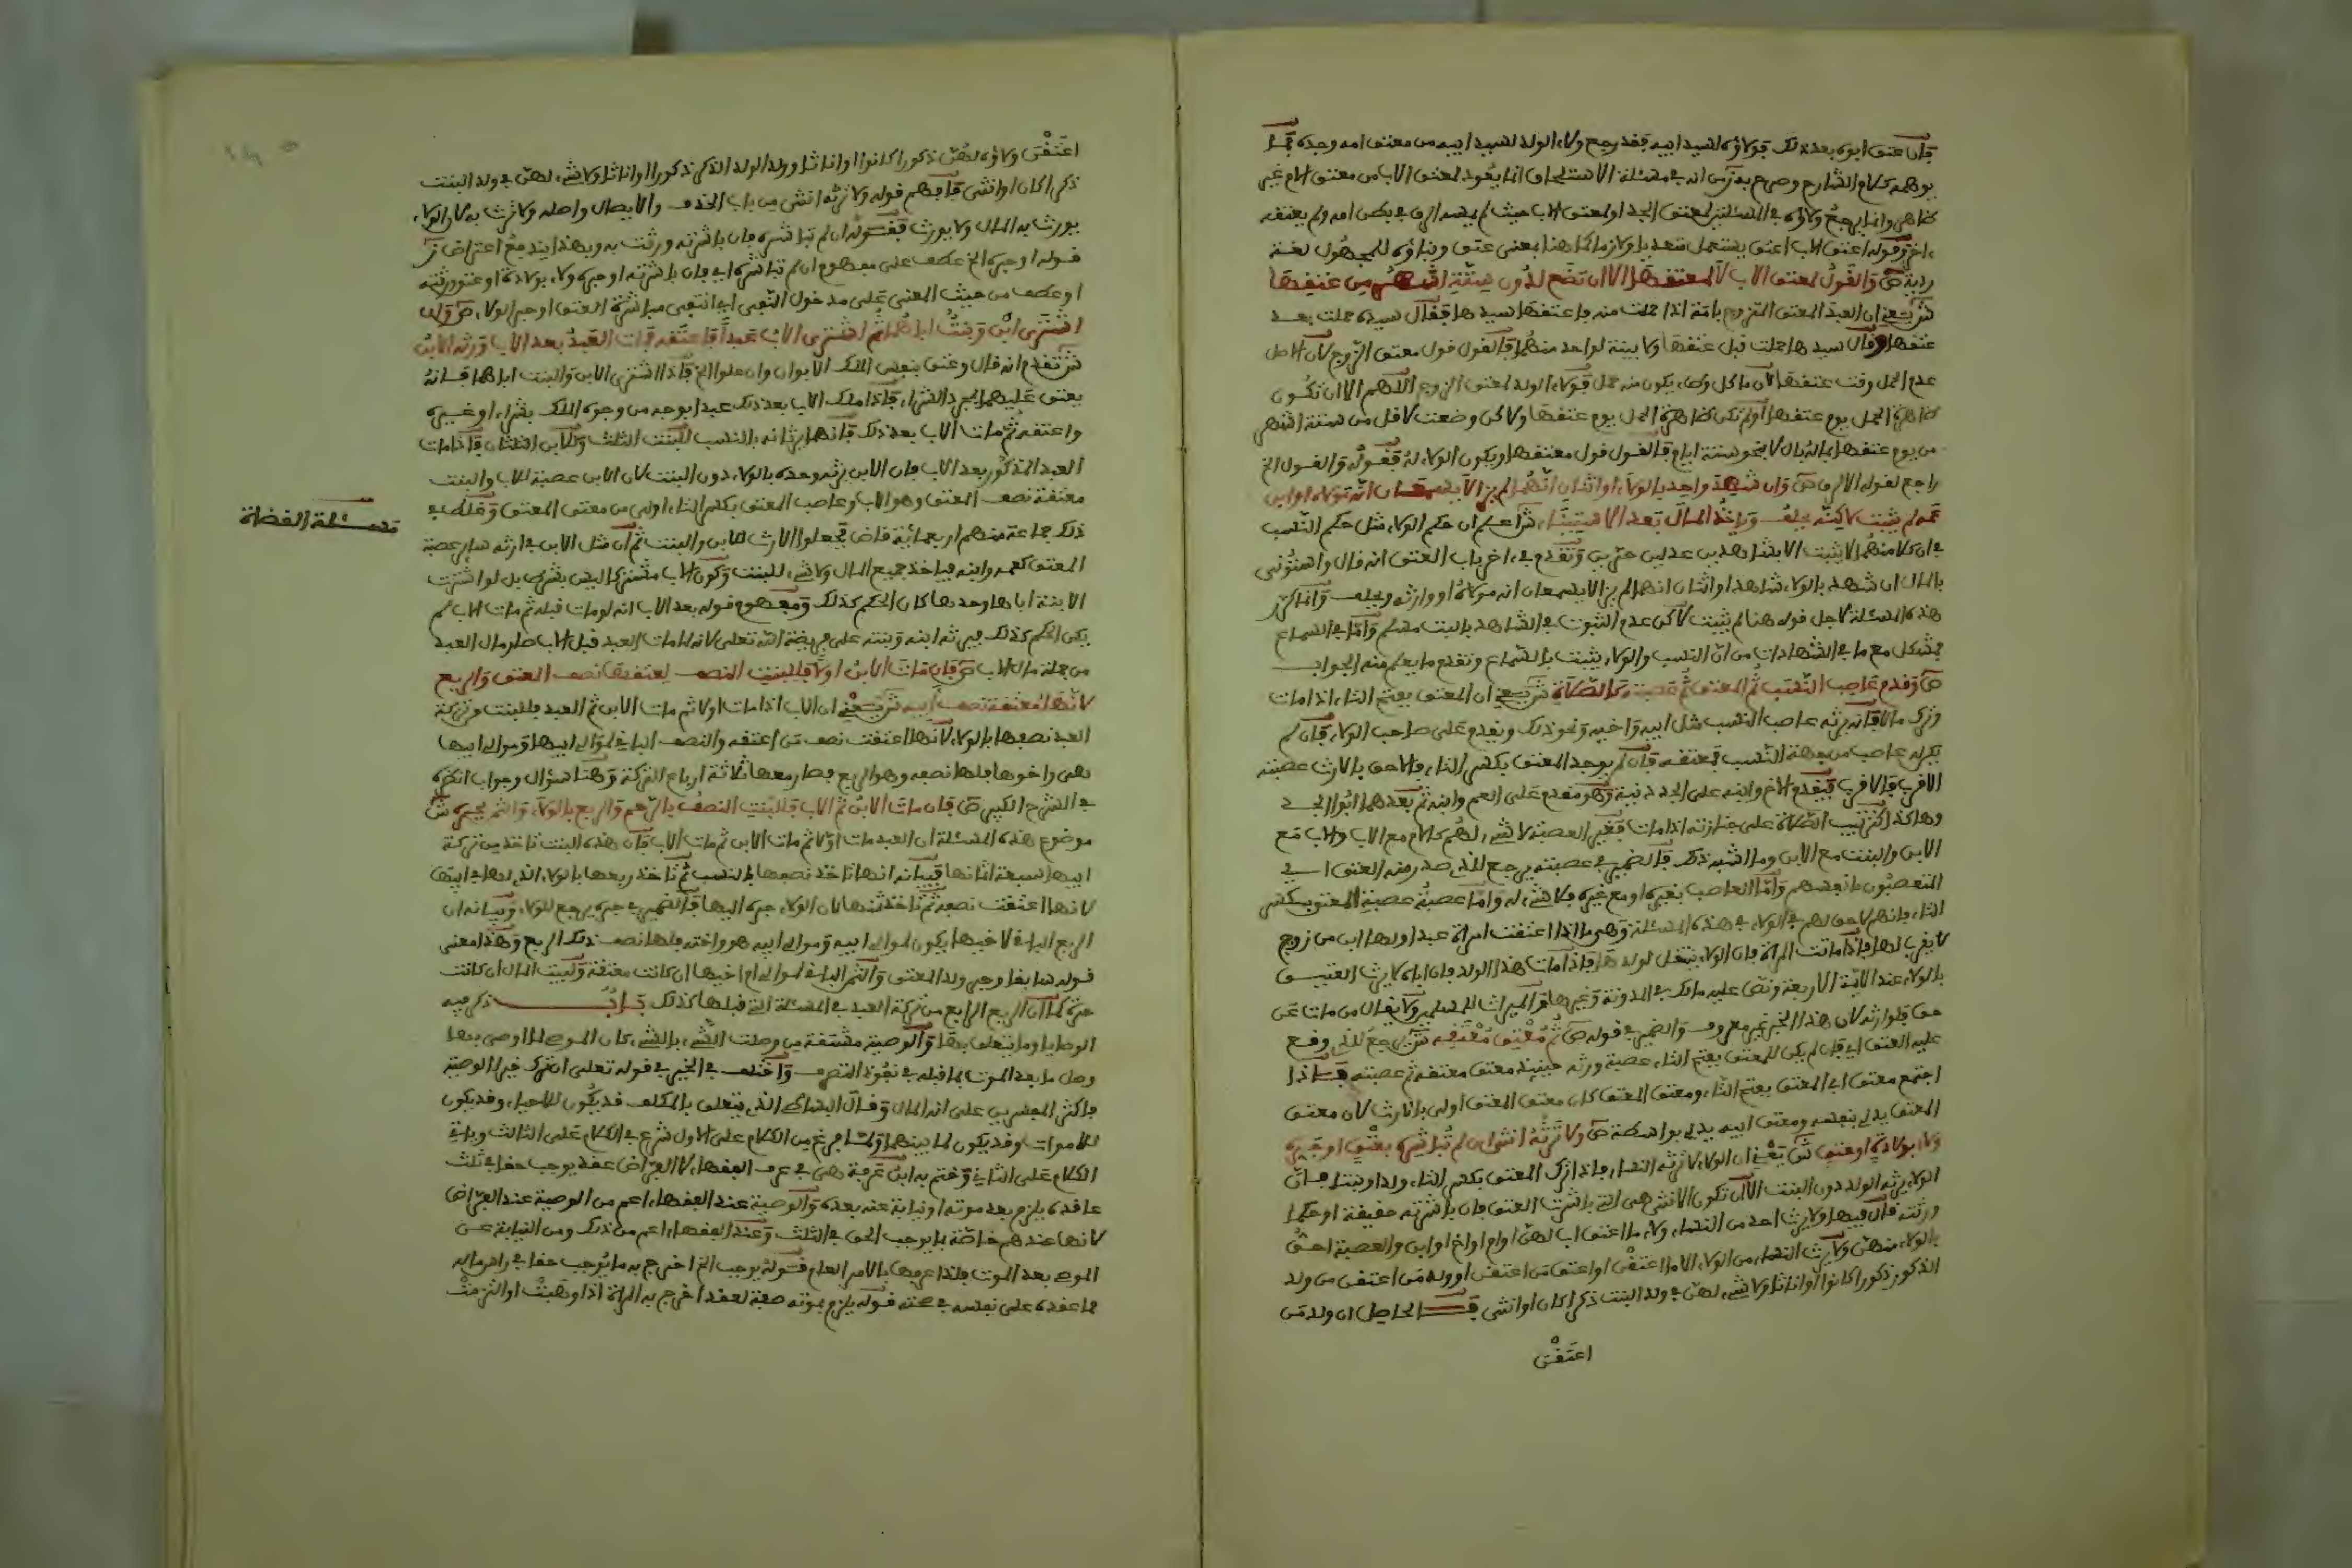 فإن عتق أبوه بعد ذلك فولاؤه لسيد أبيه فقد رجع ولاء الولد لسيد أبيه من معتق أمه وجده فما
يوهمه كلام الشارح وصرح به ز من أنه في مسئلة الاستلحاق إنما يعود لمعتق الأب من معتق الأم غير
ظاهر وإنما يرجع ولاؤه في المسئلتين لمعتق الجد أو لمعتق الأب حيث لم يمسه الرق في بطن أمه ولم يعتقه
ءاخر وقوله أعتق الأب أعتق يستعمل متعديا ولازما كما هنا بمعنى عتق وبناؤه للمجهول لغة
ردية ص والقول لمعتق الأب لا لمعتقها إلا أن تضع لدون ستة أشهر من عتقها
ش يعني أن العبد المعتق المتزوج بأمة إذا حملت منه وأعتقها سيدها فقال سيده حملت بعد
عتقها وقال سيدها حملت قبل عتقها ولا بينة لواحد منهما فالقول قول معتق الزوج لأن الأصل
عدم الحمل وقت عتقها لأن ما كل وطء يكون منه حمل فولاء الولد لمعتق الزوج اللهم إلا أن تكون
ظاهرة الحمل يوم عتقها أو لم تكن ظاهرة الحمل يوم عتقها ولاكن وضعت لأقل من ستة أشهر
من يوم عتقها بما له بال لا بنحو ستة أيام فالقول قول معتقها ويكون الولاء له فقوله والقول الخ
راجع لقوله إلا لرق ص وإن شهد واحد بالولاء أو اثنان أنهما لم يزالا يسمعان أنه مولاه أو ابن
عمه لم يثبت لاكنه يحلف ويأخذ المال بعد الاستيناء ش اعلم أن حكم الولاء مثل حكم النسب
في أن كلا منهما لا يثبت إلا بشاهدين عدلين حرين وتقدم في ءاخر باب العتق أنه قال واستؤني
بالمال إن شهد بالولاء شاهد أو اثنان أنهما لم يزالا يسمعان أنه مولاه أو وارثه وحلف وإنما كرر
هذه المسئلة لأجل قوله هنا لم يثبت لاكن عدم الثبوت في الشاهد بالبت مسلم وأما في السماع
فمشكل مع ما في الشهادات من أن النسب والولاء يثبت بالسماع وتقدم ما يعلم منه الجواب
ص وقدم عاصب النسب ثم المعتق ثم عصبته كالصلاة ش يعني أن المعتق بفتح التاء إذا مات
وترك مالا فإنه يرثه عاصب النسب مثل أبيه وأخيه ونحو ذلك ويقدم على صاحب الولاء فإن لم
يكن له عاصب من جهة النسب فمعتقه فإن لم يوجد المعتق بكسر التاء فالأحق بالإرث عصبته
الأقرب فالأقرب فيقدم الأخ وابنه على الجد دنية وهو مقدم على العم وابنه ثم بعدهما أبو الجد
وهاكذا كترتيب الصلاة على جنازته إذا مات فغير العصبة لا شيء لهم كالأم مع الأب والأب مع
الابن والبنت مع الابن وما أشبه ذلك فالضمير في عصبته يرجع للذي صدر منه العتق أي
المتعصبون بأنفسهم وأما العاصب بغيره أو مع غيره فلا شيء له وأما عصبة عصبة المعتق بكسر
التاء فإنهم لا حق لهم في الولاء في هذه المسئلة وهي ما إذا أعتقت امرأة عبدا ولها ابن من زوج
لا يقرب لها فإذا ماتت المرأة فإن الولاء ينتقل لولدها فإذا مات هذا الولد فإن أباه لا يرث العتيق
بالولاء عند الأئمة الأربعة ونص عليه مالك في المدونة وغيرها فالميراث للمسلمين ولا يقال من مات عن
حق فلوارثه لأن هذا الخبر غير معروف والضمير في قوله ص ثم معتق معتقه ش يرجع للذي وقع
عليه العتق أي فإن لم يكن للمعتق بفتح التاء عصبة ورثه حينئذ معتق معتقه ثم عصبته فإذا
اجتمع معتق أبي المعتق بفتح التاء ومعتق المعتق كان معتق المعتق أولى بالإرث لأن معتق
المعتق يدلي بنفسه ومعتق أبيه يدلي بواسطة ص ولا ترثه أنثى إن لم تباشره بعتق أو جره
ولاء بولادة أو عتق ش يعني أن الولاء لا ترثه النساء فإذا ترك المعتق بكسر التاء ولدا وبنتا فإن
الولاء يرثه الولد دون البنت إلا أن تكون الأنثى هي التي باشرت العتق فإن باشرته حقيقة أو حكما
ورثته قال فيها ولا يرث أحد من النساء ولاء ما أعتق أب لهن أو أم أو أخ أو ابن والعصبة أحق
بالولاء منهن ولا يرث النساء من الولاء إلا ما أعتقن أو أعتق من أعتقن أو ولد من أعتقن من ولد
الذكور ذكورا كانوا أو إناثا ولا شيء لهن في ولد البنت ذكرا كان أو أنثى فالحاصل أن ولد من
أعتقن
أعتقن ولاؤه لهن ذكورا كانوا أو إناثا وولد الولد الذكر ذكورا أو إناثا ولا شيء لهن في ولد البنت
ذكرا كان أو أنثى فافهم قوله ولا ترثه أنثى من باب الحذف والإيصال وأصله ولا ترث به لأن الولاء
يورث به المال ولا يورث فقوله إن لم تباشره فإن باشرته ورثت به وبهذا يندفع اعتراض ز
قوله أو جره الخ عطف على مفهوم إن لم تباشره أي فإن باشرته أو جره ولاء بولادة أو عتق ورثته
أو عطف من حيث المعنى على مدخول النفي أي انتفى مباشرة العتق أو جر الولاء ص وإن
اشترى ابن وبنت أباهما ثم اشترى الأب عبدا فأعتقه فمات العبد بعد الأب ورثه الابن
ش تقدم أنه قال وعتق بنفس الملك الأبوان وإن علوا الخ فإذا اشترى الابن والبنت أباهما فإنه
يعتق عليهما بمجرد الشراء فإذا ملك الأب بعد ذلك عبدا بوجه من وجوه الملك بشراء أو غيره
وأعتقه ثم مات الأب بعد ذلك فإنهما يرثانه بالنسب للبنت الثلث وللابن الثلثان فإذا مات
العبد المذكور بعد الأب فإن الابن يرثه وحده بالولاء دون البنت لأن الابن عصبة للأب والبنت
معتقة نصف المعتق وهو الأب وعاصب المعتق بكسر التاء أولى من معتق المعتق وغلط في
مسئلة القضاة
ذلك جماعة منهم أربعمائة قاض فجعلوا الإرث للابن والبنت ثم إن مثل الابن في إرثه سائر عصبة
المعتق كعمه وابنه فيأخذ جميع المال ولا شيء للبنت وكون الأب مشترى ليس بشرط بل لو اشترت
الابنة أباها وحدها كان الحكم كذلك ومفهوم قوله بعد الأب أنه لو مات قبله ثم مات الأب لم
يكن الحكم كذلك فيرثه ابنه وبنته على فريضة الله تعلى لأنه لما مات العبد قبل الأب صار مال العبد
من جملة مال الأب ص فإن مات الابن أولا فللبنت النصف لعتقها نصف المعتق والربع
لأنها معتقة نصف أبيه ش يعني أن الأب إذا مات أولا ثم مات الابن ثم العبد فللبنت من تركة
العبد نصفها بالولاء لأنها أعتقت نصف من أعتقه والنصف الباقي لموالي أبيها وموالي أبيها
هي وأخوها فلها نصفه وهو الربع فصار معها ثلاثة أرباع التركة وهنا سؤال وجواب انظره
في الشرح الكبير ص فإن مات الابن ثم الأب فللبنت النصف بالرحم والربع بالولاء والثمن بجره ش
موضوع هذه المسئلة أن العبد مات أولا ثم مات الابن ثم مات الأب فإن هذه البنت تأخذ من تركة
أبيها سبعة أثمانها فبيانه أنها تأخذ نصفها بالنسب ثم تأخذ ربعها بالولاء الذي لها في أبيها
لأنها أعتقت نصفه ثم تأخذ ثمنها لأن الولاء جره إليها فالضمير في جره يرجع للولاء وبيانه أن
الربع الباقي لأخيها يكون لموالي أبيه وموالي أبيه هو وأخته فلها نصف ذلك الربع وهذا معنى
قوله سابقا وجر ولد المعتق والثمن الباقي لموالي أم أخيها إن كانت معتقة ولبيت المال إن كانت
حرة كما أن الربع الرابع من تركة العبد في المسئلة التي قبلها كذلك باب ذكر فيه
الوصايا وما يتعلق بها والوصية مشتقة من وصلت الشيء بالشيء كأن الموصي لما أوصى بها
وصل ما بعد الموت بما قبله في نفوذ التصرف واختلف في الخير في قوله تعلى إن ترك خيرا الوصية
فأكثر المفسرين على أنه المال وقال البساطي الذي يتعلق بالمكلف قد يكون للأحياء وقد يكون
للأموات وقد يكون لما بينهما ولما فرغ من الكلام على الأول شرع في الكلام على الثالث ويأتي
الكلام على الثاني وختم به ابن عرفة هي في عرف الفقهاء لا الفراض عقد يوجب حقا في ثلث
عاقده يلزم بعد موته أو نيابة عنه بعده والوصية عند الفقهاء أعم من الوصية عند الفراض
لأنها عندهم خاصة بما يوجب الحق في الثلث وعند الفقهاء أعم من ذلك ومن النيابة عن
الموصي بعد الموت فلذا عرفها بالأمر العام فقوله يوجب الخ أخرج به ما يوجب حقا في رأس ماله
مما عقده على نفسه في صحته قوله يلزم بموته صفة لعقد أخرج به المرأة إذا وهبت أو التزمت